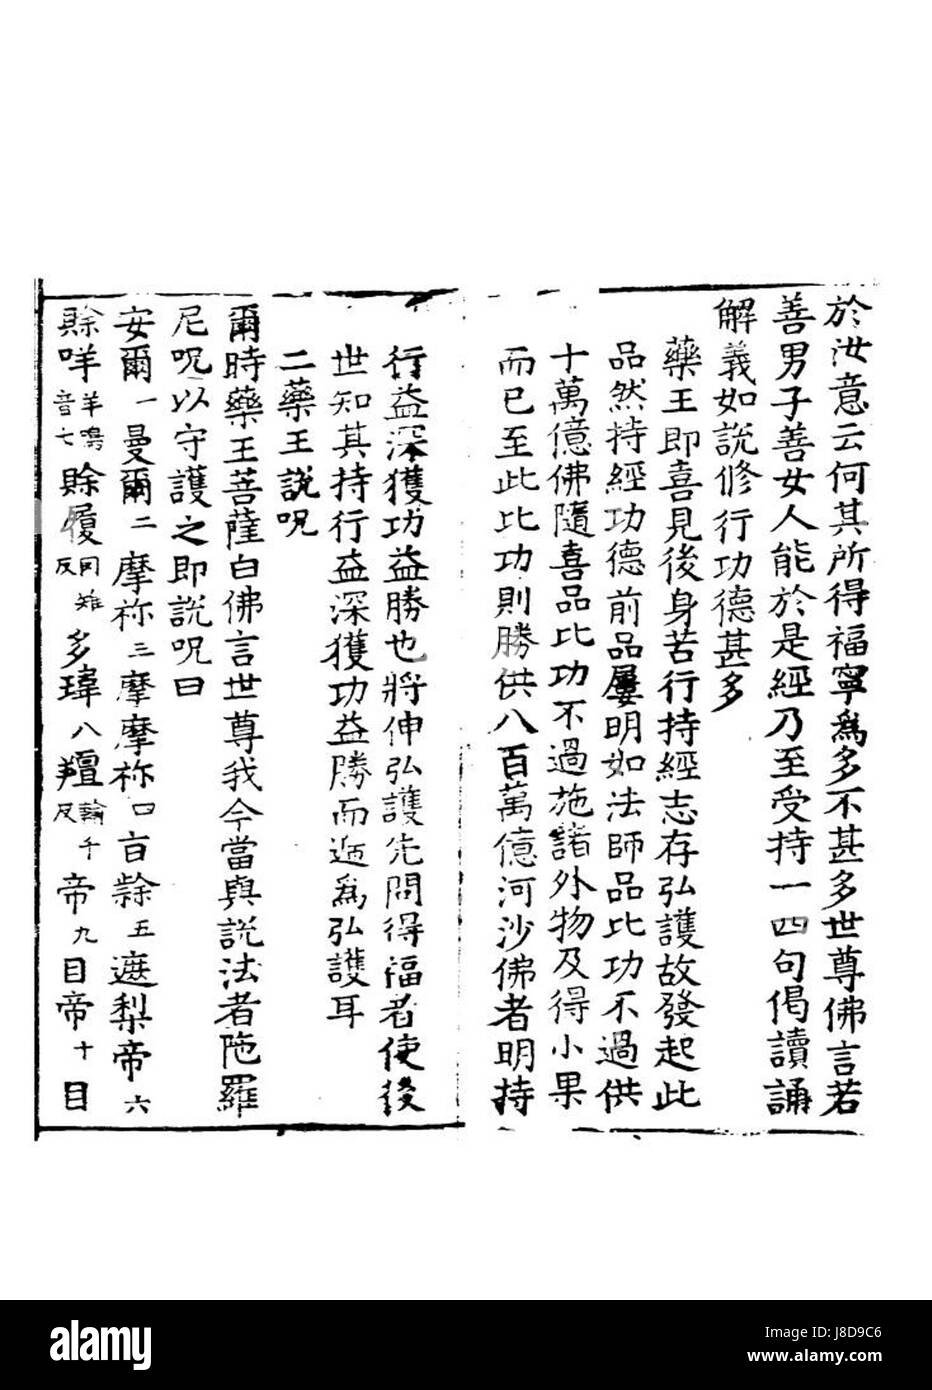 於汝意云何其所得福寧為多不甚多世尊佛言若
善男子善女人能於是經乃至受持一四句偈讀誦
解義如說修行功德甚多
藥王即喜見後身苦行持經志存弘護故發起此
品然持經功德前品屢明如法師品比功不過供
十萬億佛隨喜品比功不過施諸外物及得小果
而已至此比功則勝供八百萬億河沙佛者明持
行益深獲功益勝也將伸弘護先問得福者使後
世知其持行益深獲功益勝而遞為弘護耳
二藥王說呪
爾時藥王菩薩白佛言世尊我今當與說法者陁羅
尼呪以守護之即說呪曰
安爾一曼爾二摩祢三摩摩祢四旨隸五遮梨帝六
賒咩羊鳴音七賒履冈雉反多瑋八羶輸千反帝九目帝十目
alamy
Image ID: J8D9C6
www.alamy.com